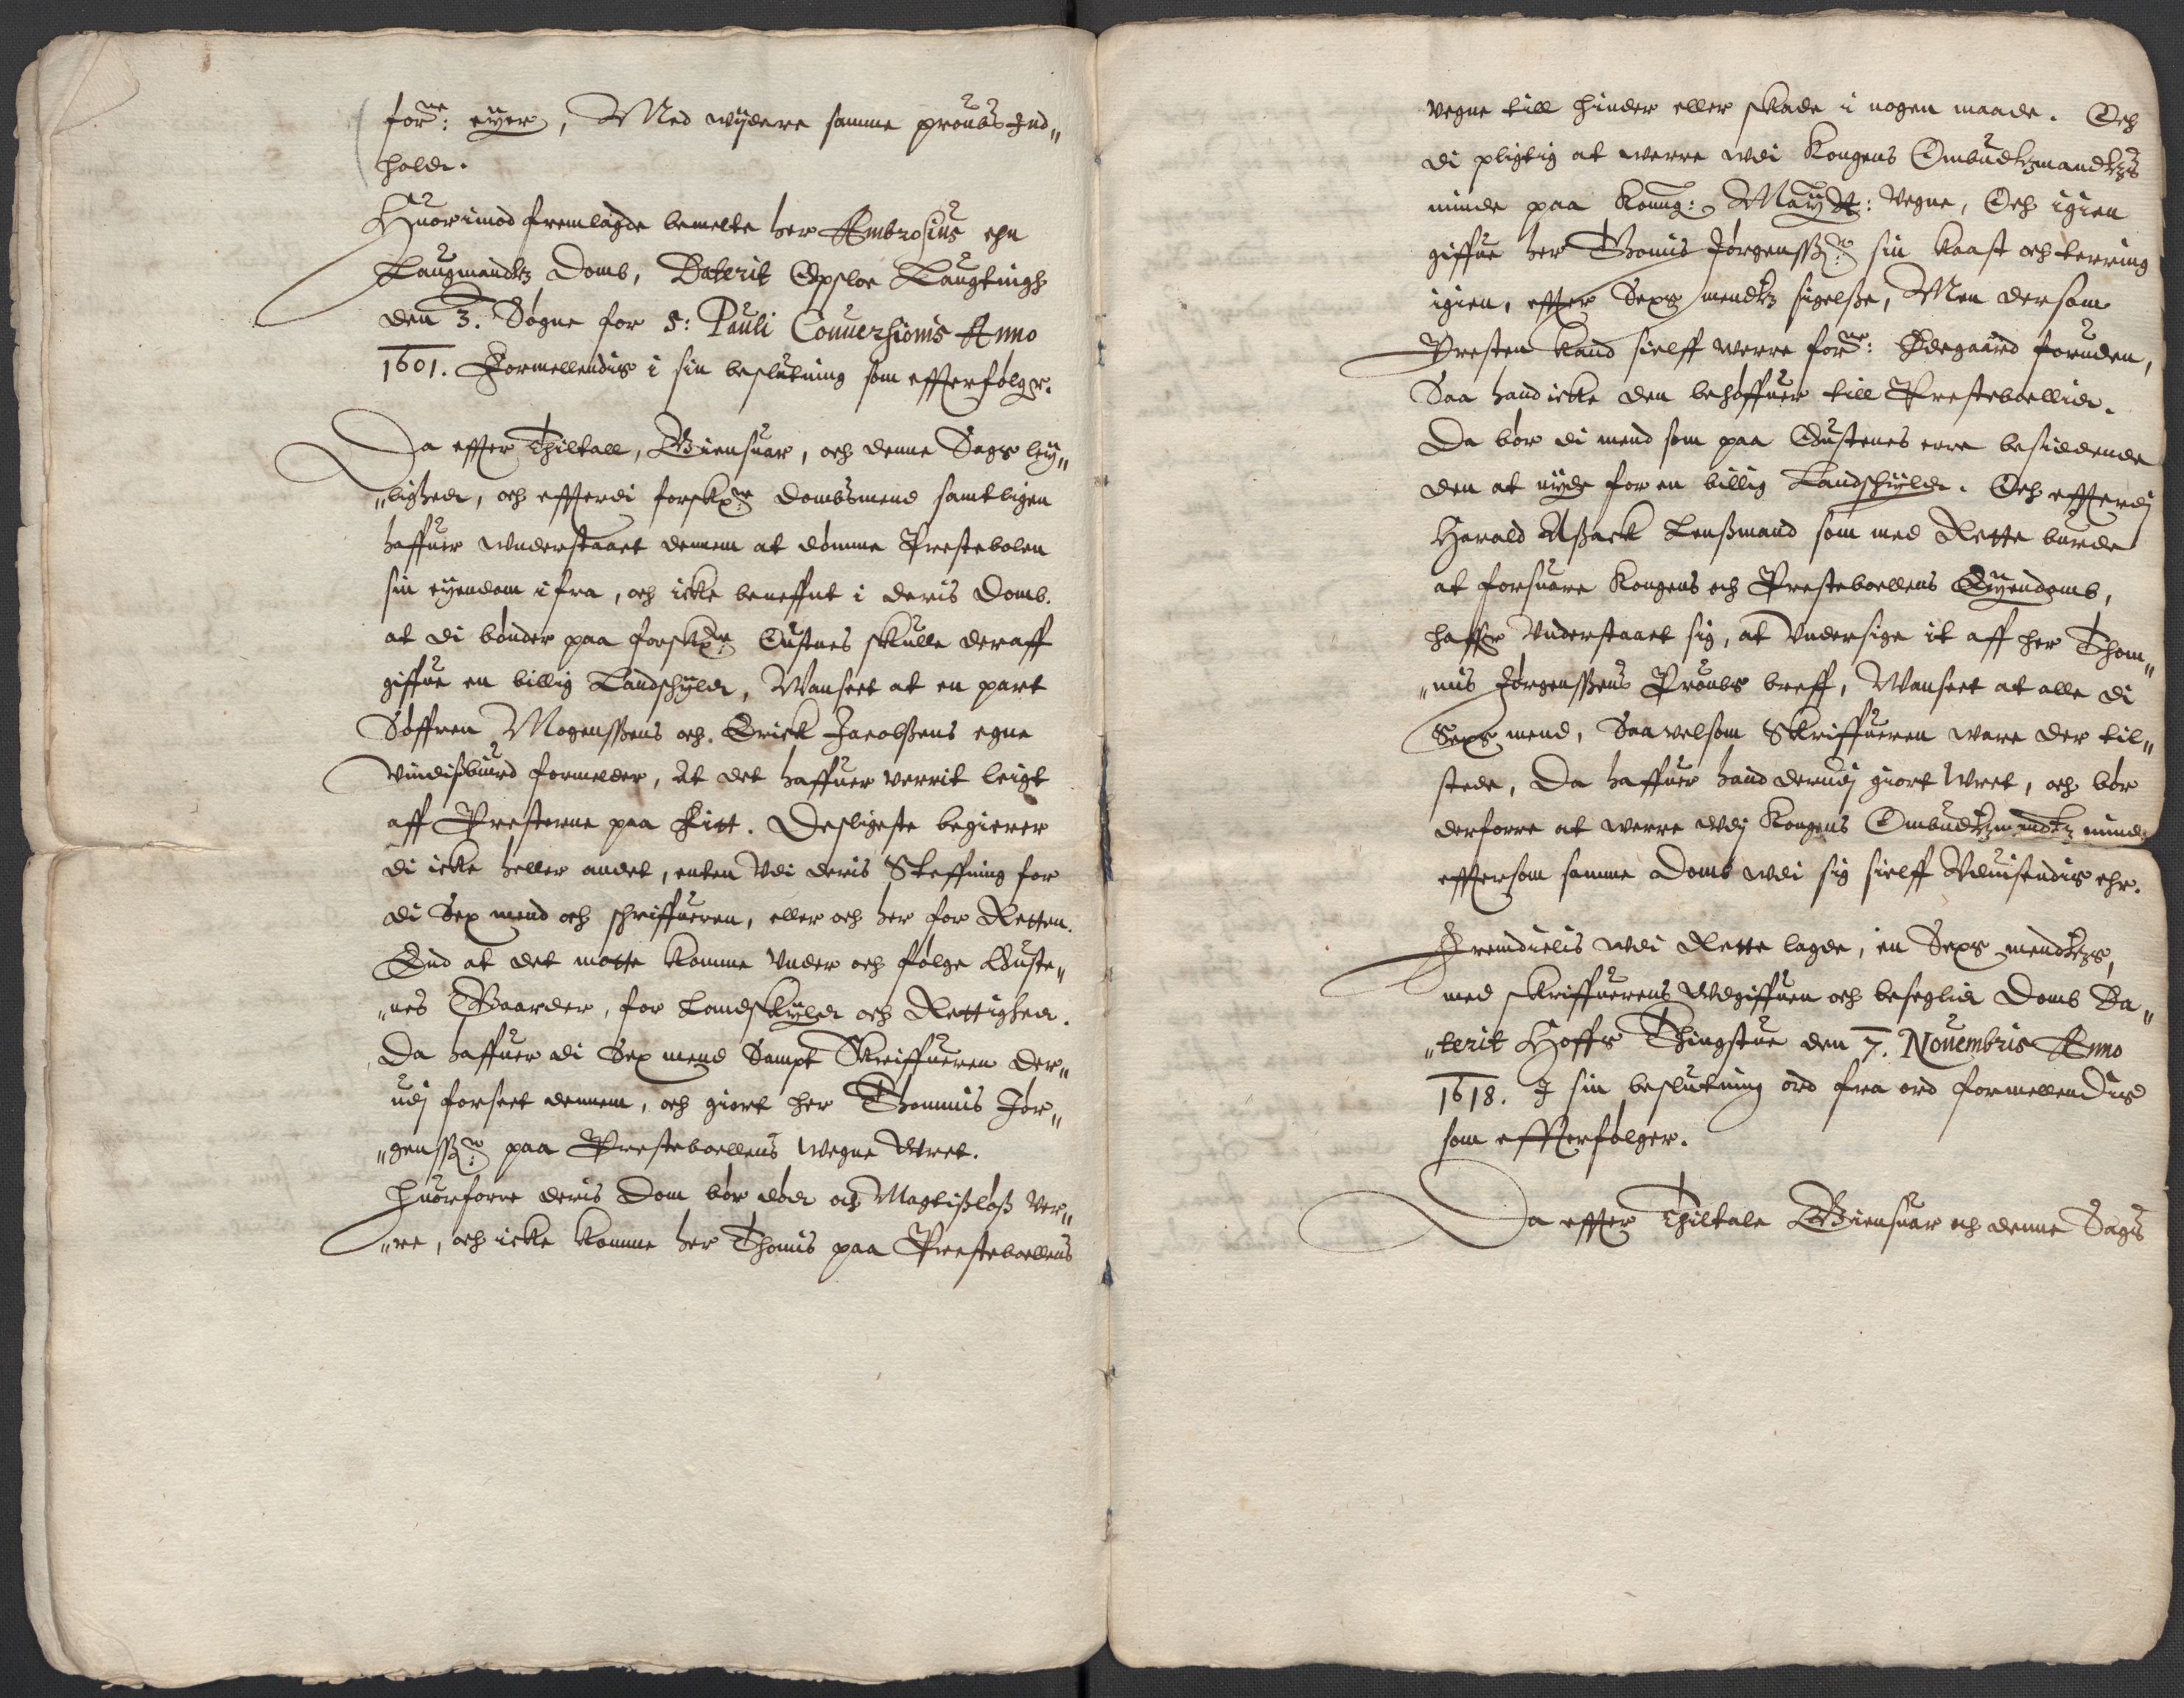 forne: eyer, Med wijdere samme proubs Ind„
hold.
Huorimod fremlagde bemelte her Ambrosius ehn
Laugmandtz Domb, Daterit Opsloe Laugtingh
den 3. Søgne for S: Pauli Conuersionis Anno
1601. Formellendis i sin beslutning som effterfølger.
Da effter Thiltall, Giensuar, och denne Sags ley„
„lighed, och effterdi forskrne Dombsmend samtligen
haffuer wnderstaaet dennem at dømme Prestebolen
sin eyendom ifra, och icke beneffnt i deris Domb.
at di bønder paa forskrne Eustnes skulle deraff
giffue en billig Landschyld, Wanseet at en part
Søffren Mogenssens och Erick Jacobsens egne
Vindisbiurd formelder, At det haffuer verrit leigt
aff Presterne paa Fitt. Desligeste begierer
di icke heller andet, enten Vdi deris Steffning for
di Sex mend och schriffueren, eller och her for Retten.
End at det motte komme Vnder och følge Euste„
„nes Gaarder, for Landskyld och Rettighed.
Da haffuer di Sex mend Sampt Skriffueren der„
udj forseet dennem, och giort her Thommis Jør„
„genssn: paa Presteboellens Wegne Wret.
Huorforre deris Dom bør død och Magtisløs Ver„
„re, och icke komme her Thomis paa Presteboellens
vegne till hinder eller skade i nogen maade. Och
di pligtig at werre wdi Kongens Ombudtzmandtzs
minde paa Konng: Maytt: Vegne, Och igien
giffue her Thomis Jørgenssn: sin kaast och terring
igien, effter Sexs mendtz sigelse, Men dersom
Presten kand sielff werre forne: Ødegaard foruden,
Saa hand icke den behøffuer till Presteboellid.
Da bør di mend som paa Eustenes erre besiddende
den at nyde for en billig Landschyld. Och effterdj
Harald Asack Lensmand som med Rette burde
at forsuare Kongens och Presteboellens Eyendomb,
haffr Vnderstaaet sig, at Vndersige it aff her Thom„
„mis Jørgenssens Proubs breff, Wanseet at alle di
Sexs mend, Saa welsom Skriffueren ware der til„
stede, Da haffuer hand derudj giort Wret, och bør
derforre at werre Wdj Kongens Ombudtzmandtz minde
effttersom samme Domb wdi sig sielff Vduisendis ehr.
Fremdielis wdi Rette lagde, en Sexs mendtzs,
med skriffuerens Wdgiffuen och beseglid Domb Da„
„terit Hoffs Thingstue den 7. Nouembris Anno
1618. I sin beslutning ord fra ord formellendis
som effterfølger.
Da effter Thiltale Giensuar och denne Sags